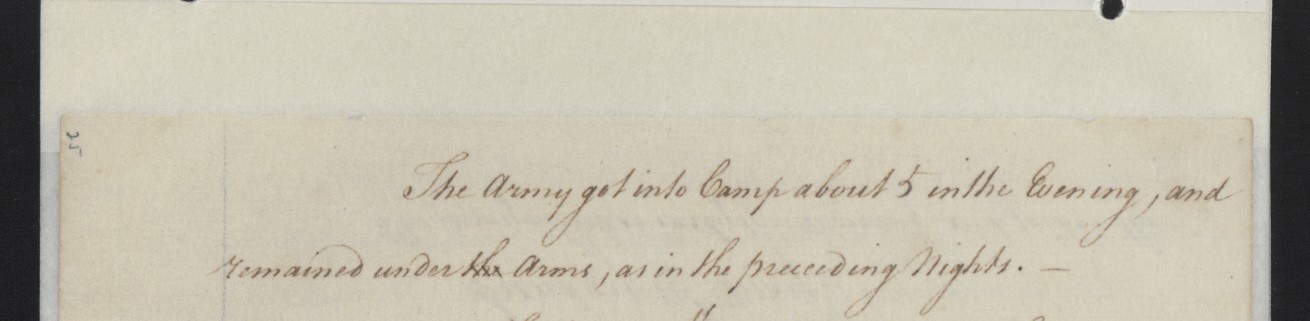 25
The Army got into Camp about 5 in the Evening, and
remained under the Arms, as in the preceeding Nights. —